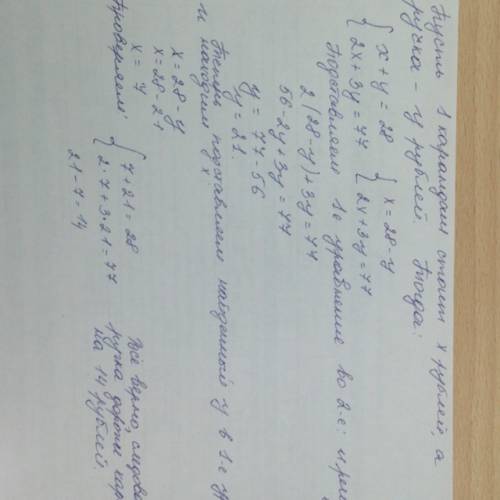 Пусть 1 карандаш стоит x рублей, а
ручка - y рублей. Тогда:
{ x + y = 28 { x = 28 - y
2x + 3y = 77 2x + 3y = 77
Подставляем 1е уравнение во 2-е: и
2(28 - y) + 3y = 77
56 - 2y + 3y = 77
y = 77 - 56
y = 21.
Теперь подставляем найденный y в 1-е
и находим x:
x = 28 - y
x = 28 - 21
x = 7
Проверяем: { 7 + 21 = 28
2·7 + 3·21 = 77
21 - 7 = 14
Всё верно, следова
ручка дороже кар
на 14 рублей.